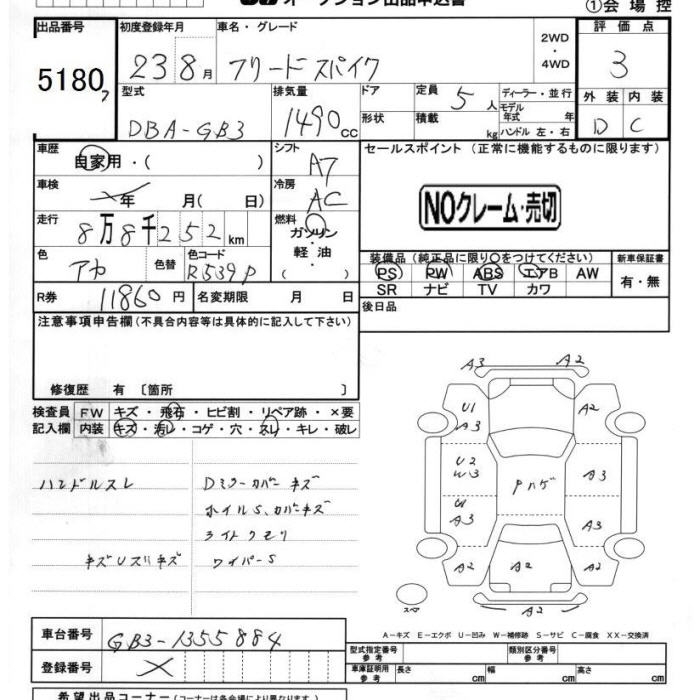 オークション出品申込書
①会場控
出品番号 初度登録年月 車名・グレード 2WD・4WD 評価点
5180 23 8月 フリードスパイク 3
型式 排気量 ドア 定員 ディーラー・並行 外装 内装
DBA-GB3 1490cc 5人 モデル年式 年 D C
形状 積載 kg ハンドル 左・右
車歴 シフト セールスポイント（正常に機能するものに限ります）
自家用・( ) A7
車検 冷房
年 月( 日) AC NOクレーム・売切
走行 燃料
8万8千252km ガソリン・軽油
色 色替 色コード 装備品（純正品に限り○をつけてください） 新車保証書
アカ R539P ( ) PS PW ABS エアB AW 有・無
SR ナビ TV カワ
R券 11860円 名変期限 月 日 後日品
注意事項申告欄（不具合内容等は具体的に記入して下さい）
修復歴 有 〔箇所 〕
検査員 FW キズ・飛石・ヒビ割・リペア跡・×要
記入欄 内装 キズ・汚レ・コゲ・穴・スレ・キレ・破レ
ハンドルスレ Dミラーカバーキズ
ホイルS、カバーキズ
ライトクモリ
ワイパーS
A3 A2
U1 A3 A2
U2 W3 Pハゲ A3
A3 A3
A2 A2 A2
A2 A2
スペア
A－キズ E－エクボ U－凹み W－補修跡 S－サビ C－腐食 XX－交換済
車台番号 GB3-1355884
登録番号
型式指定番号 参考 類別区分番号 参考
車庫証明用 参考 長さ cm 幅 cm 高さ cm
希望出品コーナー（コーナーは各会場により異なります）